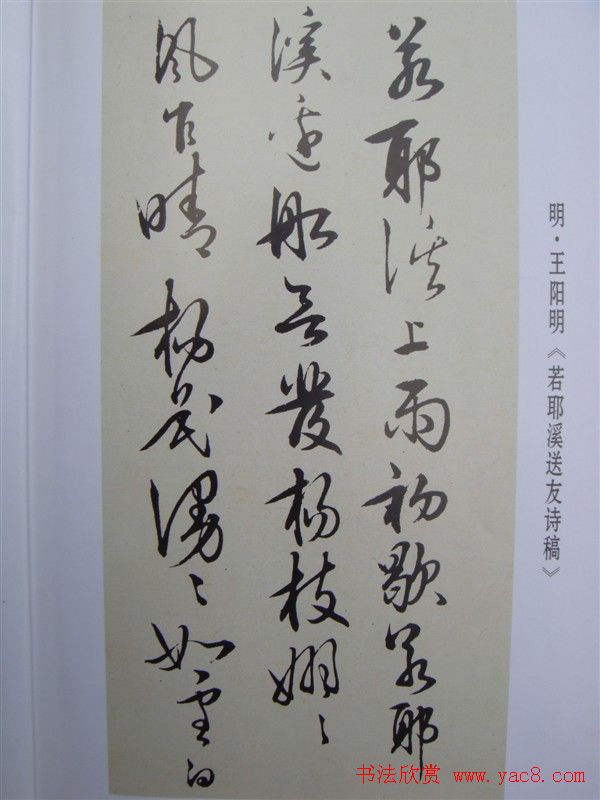 若耶溪上雨初歇若耶
溪邊船發楊枝嫋〻
風乍晴楊花漫〻如雪白
明·王阳明《若耶溪送友诗稿》
书法欣赏 www.yac8.com